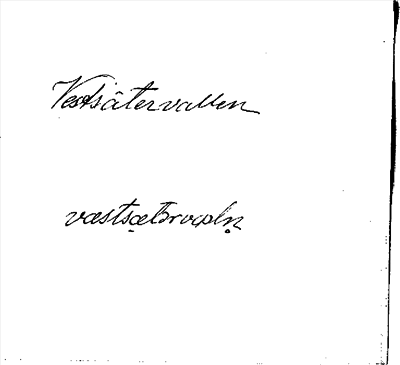 Vestsätervallen
væstsætərvɑln̥